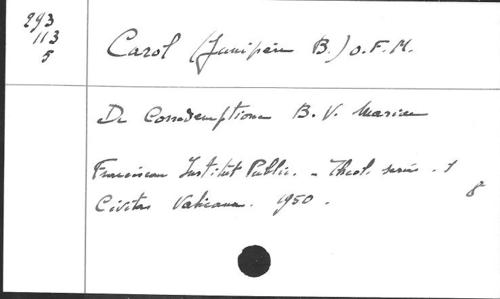 293
113
5
Carol (Juniper B.) O.F.M.
De Corredemptione B. V. Mariae
Franciscan Institut Public. - Theol. series. 1
Civitas Vaticana. 1950.
8